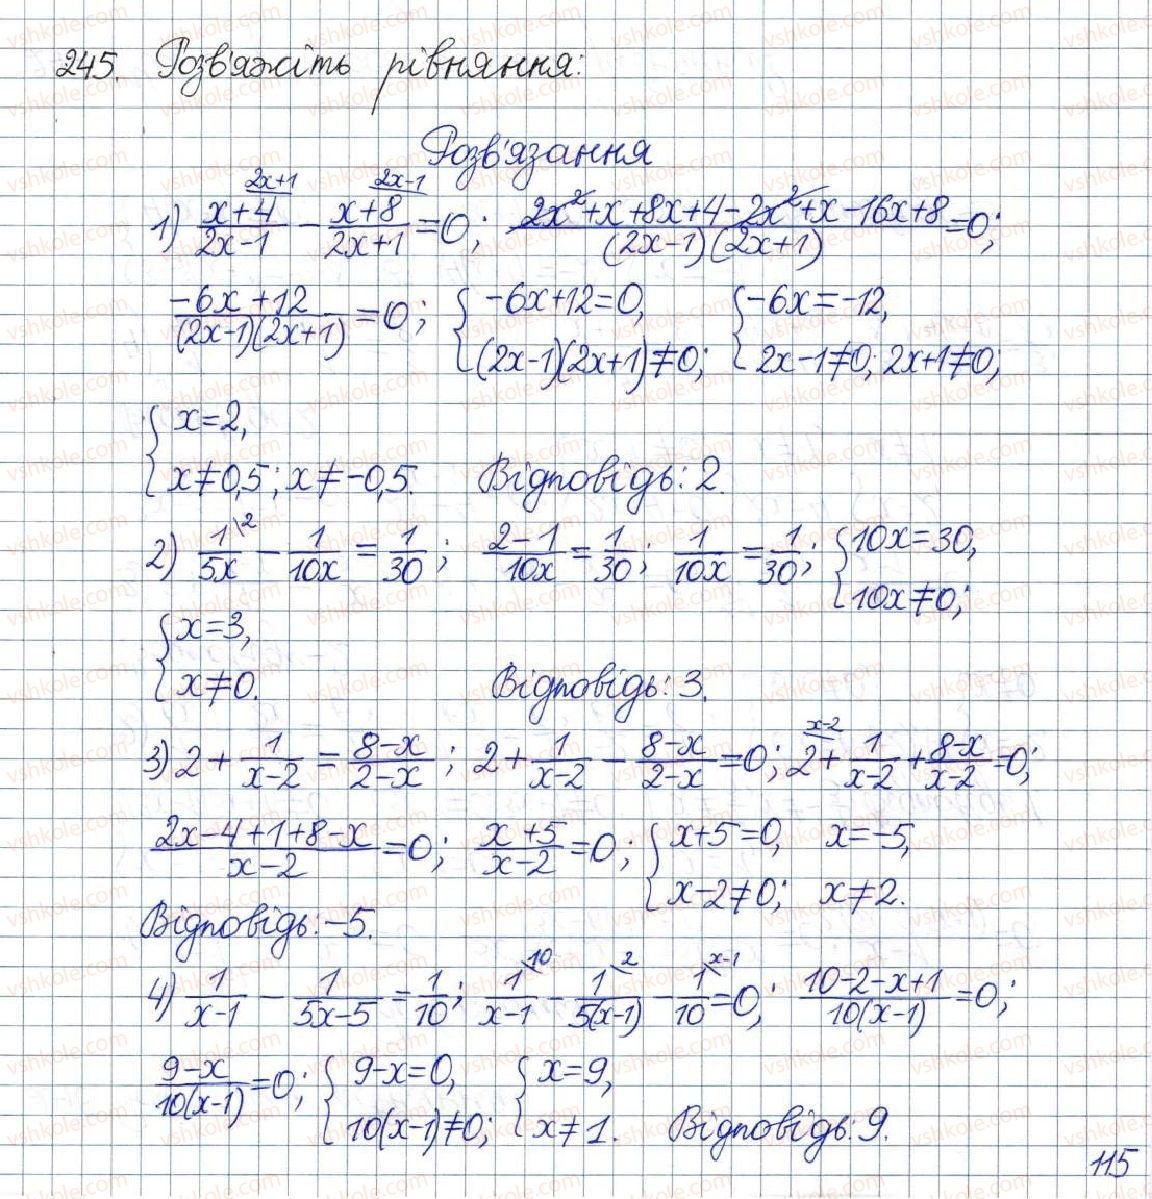 245. Розв'яжіть рівняння:
Розв'язання
1) (x+4)/(2x-1) \ 2x+1 - (x+8)/(2x+1) \ 2x-1 = 0; (2x²+x+8x+4-2x²+x-16x+8)/((2x-1)(2x+1)) = 0;
(-6x+12)/((2x-1)(2x+1)) = 0; { -6x+12=0, (2x-1)(2x+1)≠0; { -6x=-12, 2x-1≠0; 2x+1≠0;
{ x=2, x≠0,5; x≠-0,5. Відповідь: 2.
2) 1/(5x) \ 2 - 1/(10x) = 1/30; (2-1)/(10x) = 1/30; 1/(10x) = 1/30; { 10x=30, 10x≠0;
{ x=3, x≠0. Відповідь: 3.
3) 2 + 1/(x-2) = (8-x)/(2-x); 2 + 1/(x-2) - (8-x)/(2-x) = 0; 2 \ x-2 + 1/(x-2) + (8-x)/(x-2) = 0;
(2x-4+1+8-x)/(x-2) = 0; (x+5)/(x-2) = 0; { x+5=0, x=-5, x-2≠0; x≠2.
Відповідь: -5.
4) 1/(x-1) - 1/(5x-5) = 1/10; 1/(x-1) \ 10 - 1/(5(x-1)) \ 2 - 1/10 \ x-1 = 0; (10-2-x+1)/(10(x-1)) = 0;
(9-x)/(10(x-1)) = 0; { 9-x=0, 10(x-1)≠0; { x=9, x≠1. Відповідь: 9.
115
vshkole.com